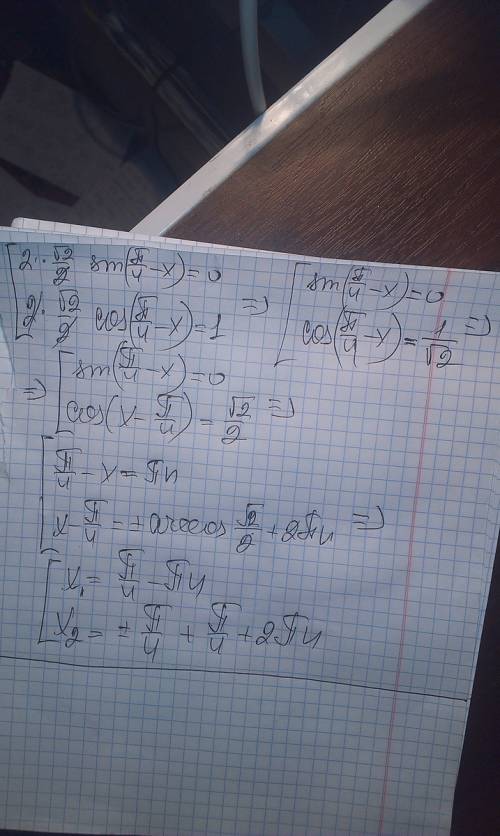 [ 2·√2/2 sin(π/4 - x) = 0
2·√2/2 cos(π/4 - x) = 1 ⇒ [ sin(π/4 - x) = 0
cos(π/4 - x) = 1/√2 ⇒
⇒ [ sin(π/4 - x) = 0
cos(x - π/4) = √2/2 ⇒
[ π/4 - x = πn
x - π/4 = ± arccos √2/2 + 2πn ⇒
[ x₁ = π/4 - πn
x₂ = ± π/4 + π/4 + 2πn